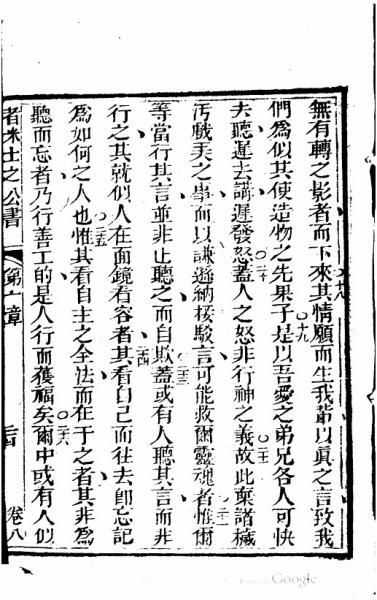 無有轉之影者而下來其○十八情願而生我䓁以眞之言致我
們爲似其使造物之先果子○十九是以吾愛之弟兄各人可快
去聽遲去講遲發怒○二十蓋人之怒非行神之義○二一故此棄諸穢
汚戲美之事而以謙遜納接駁言可能救爾靈魂者○二二惟爾
等當行其言並非止聽之而自欺○二三蓋或有人聽其言而非
行之其就似人在面鏡看容者○二四其看自己而往去卽忘記
爲如何之人也○二五惟其看自主之全法而在于之者其非爲
聽而忘者乃行善工的是人行而獲福矣○二六爾中或有人似
者米士之公書 第一章 卷八
Google